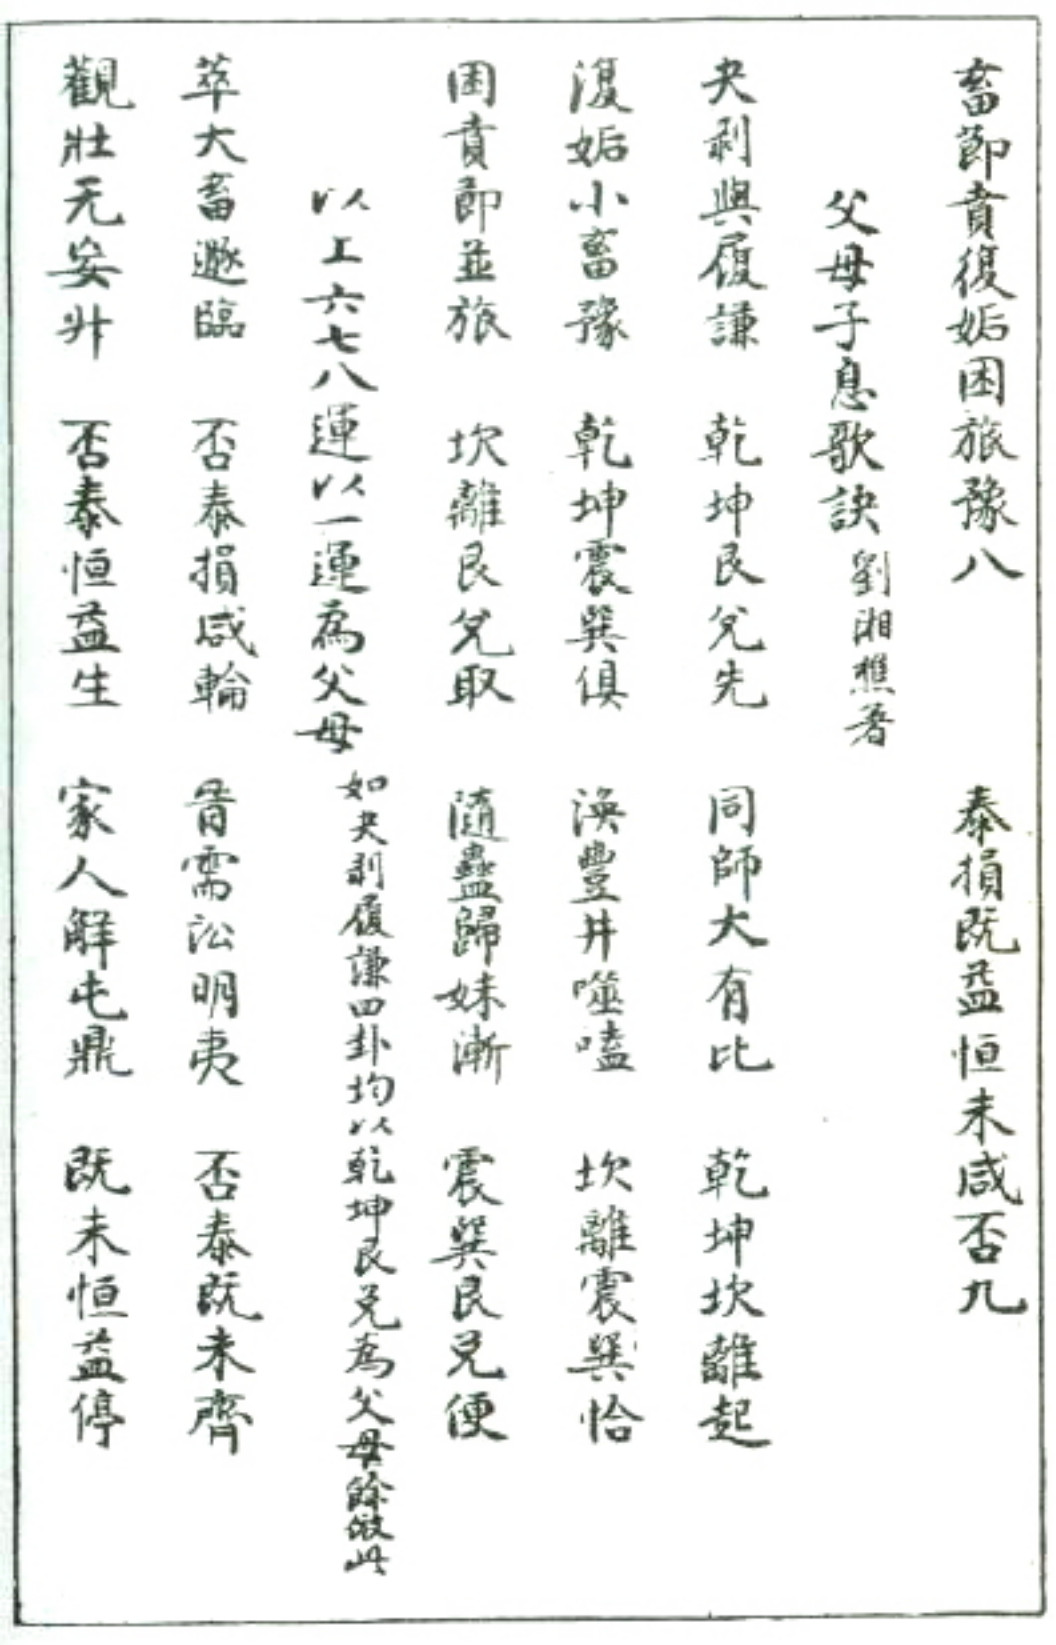 畜節賁復姤困旅豫八　泰損既益恒未咸否九
父母子息歌訣　劉湘樵著
夬剥與履謙　乾坤艮兌先　同師大有比　乾坤坎離起
復姤小畜豫　乾坤震巽俱　渙豐井噬嗑　坎離震巽恰
困賁節並旅　坎離艮兌取　隨蠱歸妹漸　震巽艮兌便
以上六七八運以一運為父母　如夬剥履謙四卦均以乾坤艮兌為父母餘倣此
萃大畜遯臨　否泰損咸輪　晉需訟明夷　否泰既未齊
觀壯无妄升　否泰恒益生　家人解屯鼎　既未恒益停